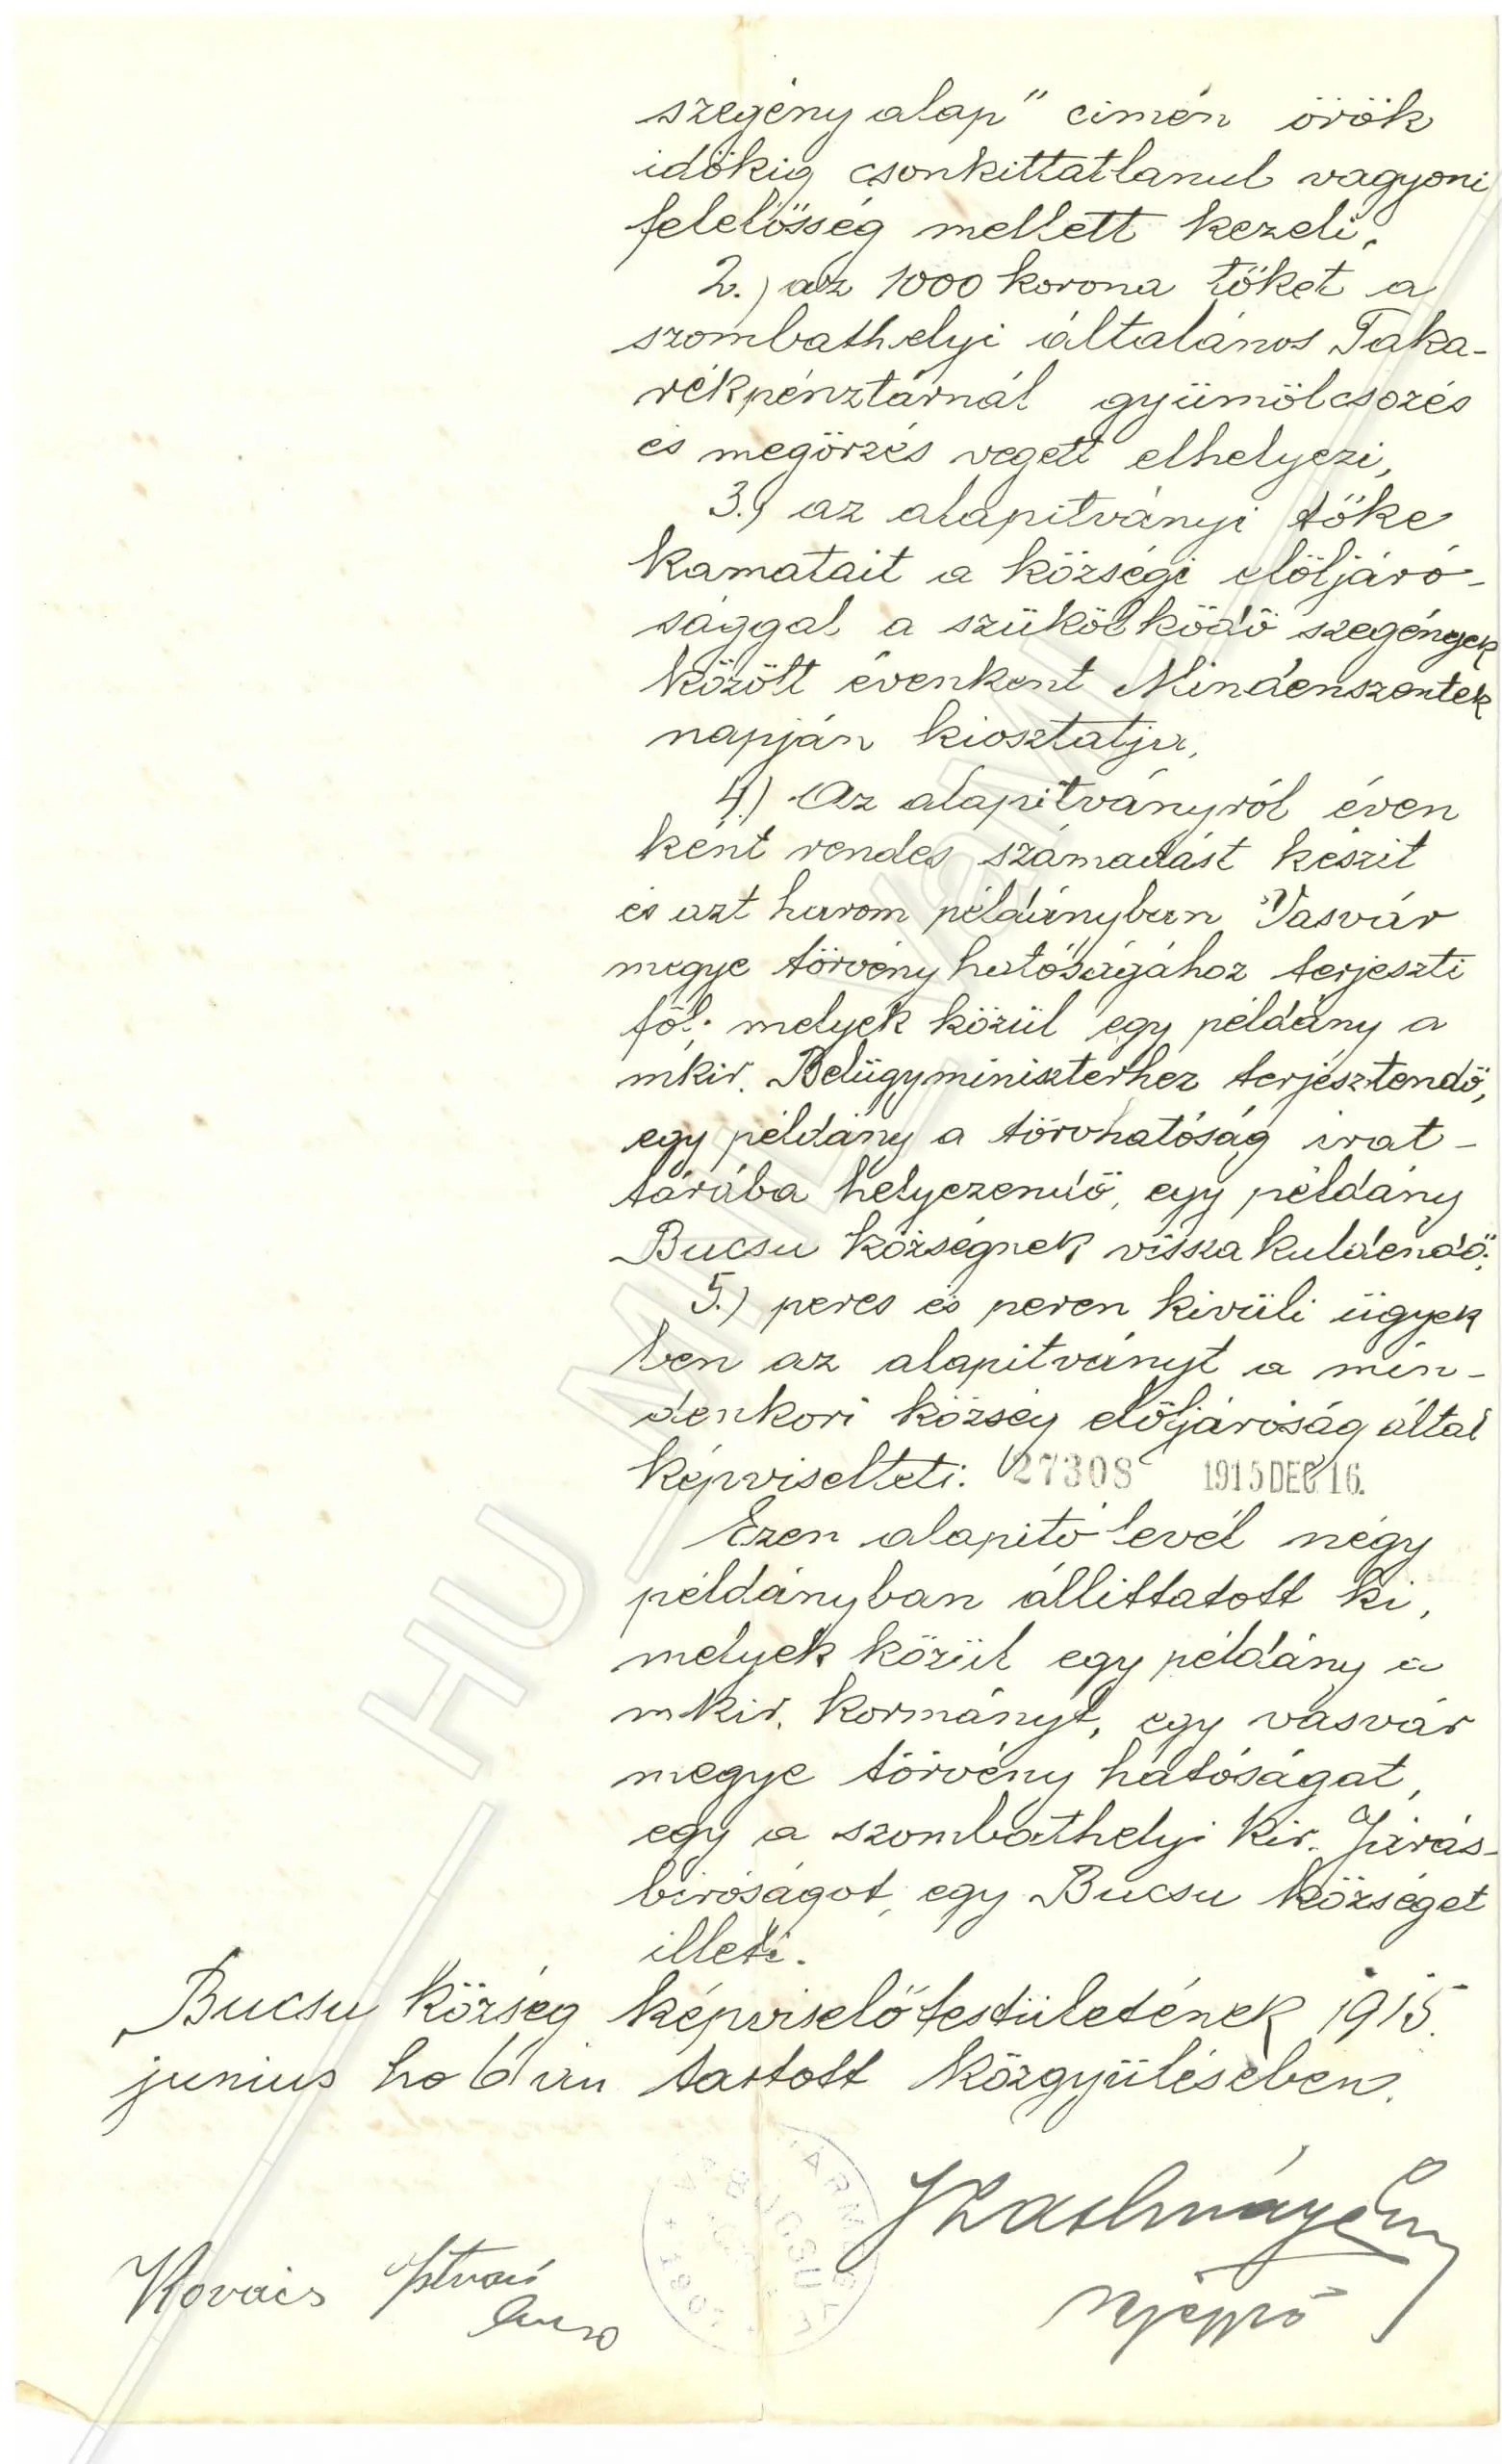 szegény alap" cimén örök
időkig csonkittatlanul vagyoni
felelösség mellett kezeli,
2.) az 1000 korona tőkét a
szombathelyi általános Taka-
rékpénztárnál gyümölcsozés
és megörzés vegett elhelyezi,
3.) az alapitványi tőke
kamatait a községi elöljáró-
sággal a szükölködö szegények
között évenkent Mindenszentek
napján kiosztatja,
4.) Az alapitványról éven
ként rendes számadást készit
és azt harom példányban Vasvár
megye törvény hatóságához terjeszti
föl; melyek közül egy példány a
mkir. Belügyminiszterhez terjesztendö,
egy példány a törvhatóság irat-
tárába helyezendö, egy példány
Bucsu községnek vissza kuldendö;
5.) peres és peren kivüli ügyek
ben az alapitványt a min-
denkori község elöljáróság által
képviselteti. 27308 1915 DEC 16.
Ezen alapitó levél négy
példányban állittatott ki,
melyek közül egy példány a
mkir. kormányt, egy vasvár
megye törvény hatóságat,
egy a szombathelyi kir. Járás-
biróságot, egy Bucsu községet
illeti.
Bucsu község képviselőtestületének 1915.
junius ho 6 án tartott közgyülésében.
BUCSU
Kovács István